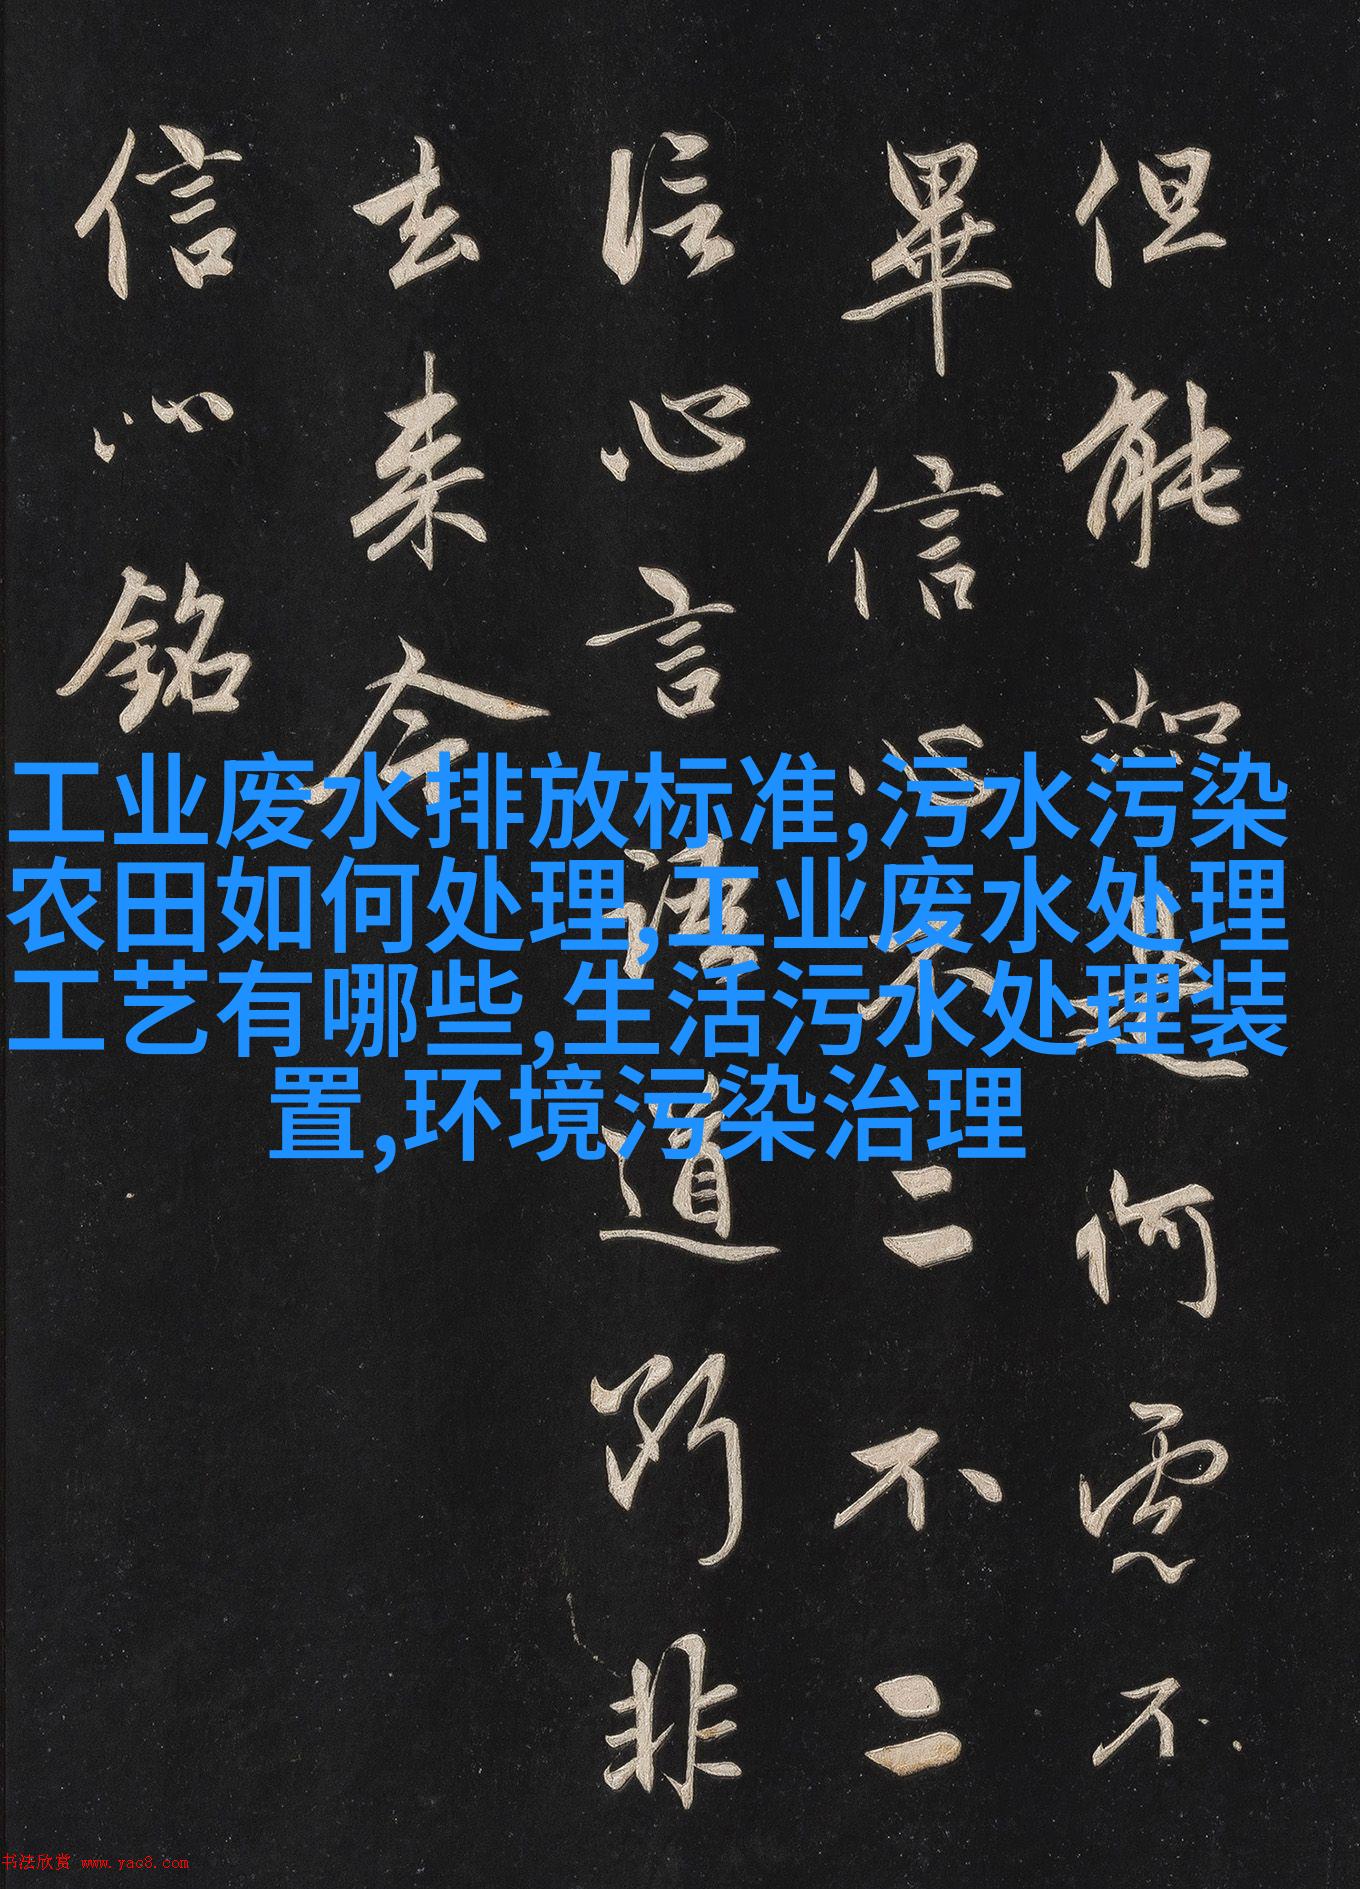 但能如是何慮不
畢信心不二不二
信心言語道断非
去来今
信心銘
工业废水排放标准,污水污染
农田如何处理,工业废水处理
工艺有哪些,生活污水处理装
置,环境污染治理
书法欣赏 www.yac8.com